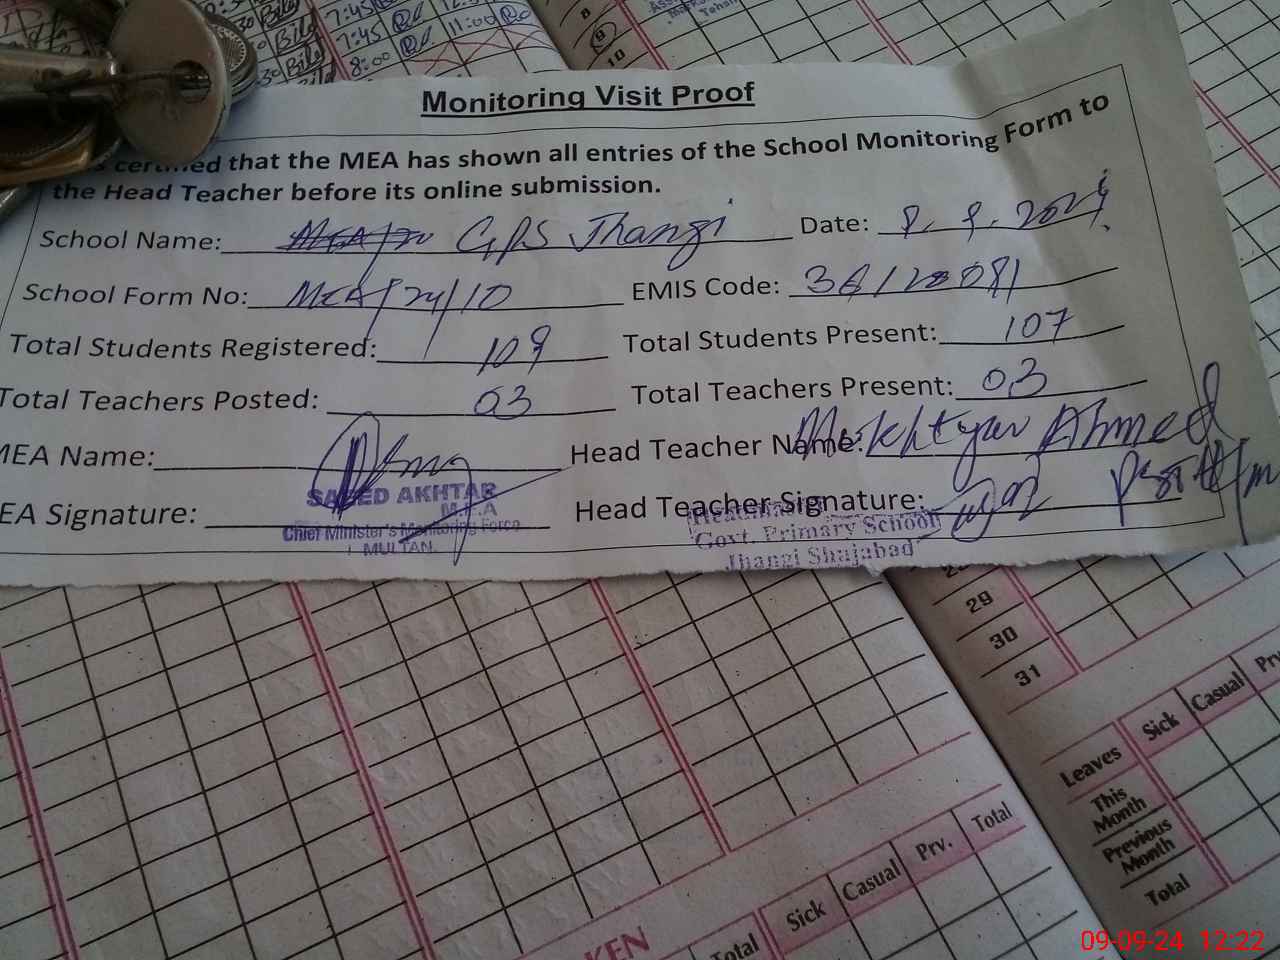 7:45
7:45 11:00
8:00
8
9
10
Monitoring Visit Proof
certified that the MEA has shown all entries of the School Monitoring Form to
the Head Teacher before its online submission.
School Name: GPS Jhangi Date: 9.9.2024
School Form No: MEA/24/10 EMIS Code:
Total Students Registered: 109 Total Students Present: 107
Total Teachers Posted: 03 Total Teachers Present: 03
MEA Name: Head Teacher Name: Mukhtyar Ahmed
EA Signature: Head Teacher Signature:
SAEED AKHTAR
M.E.A
Chief Minister's Monitoring Force
MULTAN.
Govt. Primary School
Jhangi Shujabad
29
30
31
Leaves Sick Casual Prv
This Month
Previous Month
Total
Total Sick Casual Prv. Total
KEN
09-09-24 12:22